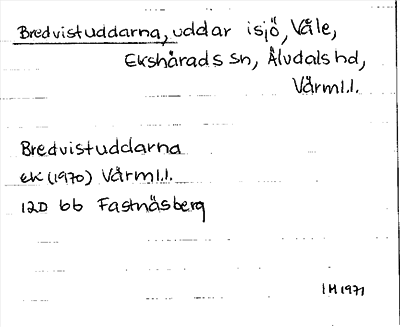 Bredvistuddarna, uddar i sjö, Våle,
Ekshärads sn, Älvdals hd,
Värml.l.
Bredvistuddarna
ek (1970) Värml.l.
12D 6b Fastnäsberg
IH 1971